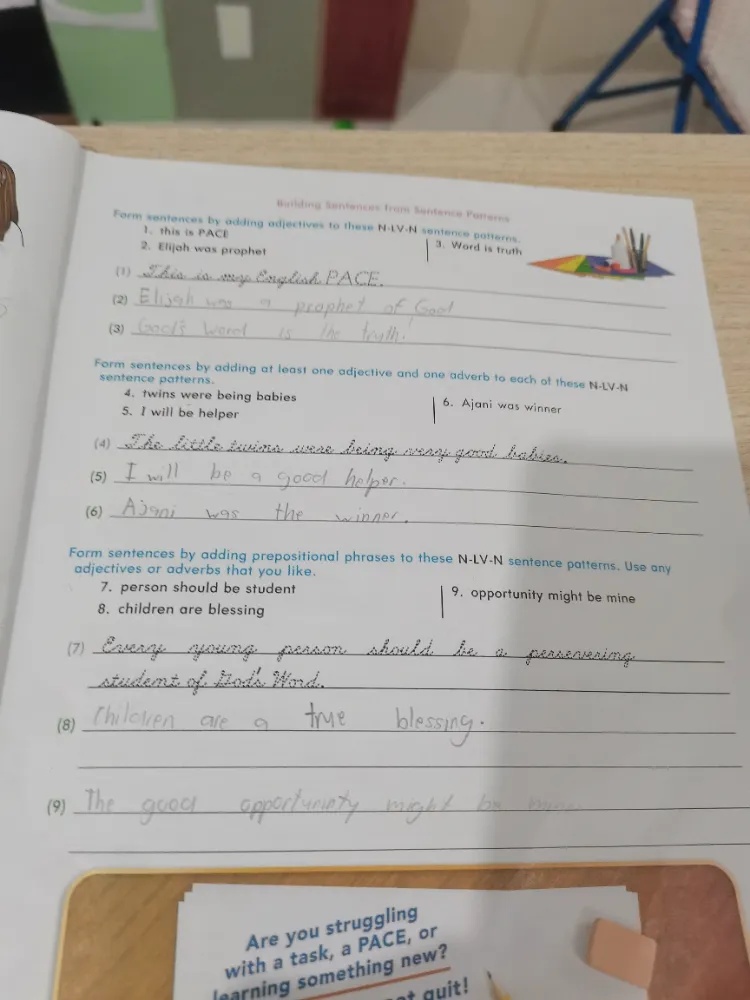 Building Sentences from Sentence Patterns
Form sentences by adding adjectives to these N-LV-N sentence patterns.
1. this is PACE
2. Elijah was prophet
3. Word is truth
(1) This is my English PACE.
(2) Elijah was a prophet of God
(3) God's Word is the truth.
Form sentences by adding at least one adjective and one adverb to each of these N-LV-N
sentence patterns.
4. twins were being babies
5. I will be helper
6. Ajani was winner
(4) The little twins were being very good babies.
(5) I will be a good helper.
(6) Ajani was the winner.
Form sentences by adding prepositional phrases to these N-LV-N sentence patterns. Use any
adjectives or adverbs that you like.
7. person should be student
8. children are blessing
9. opportunity might be mine
(7) Every young person should be a persevering
student of God's Word.
(8) Children are a true blessing.
(9) The good opportuninty might be mine
Are you struggling
with a task, a PACE, or
learning something new?
quit!